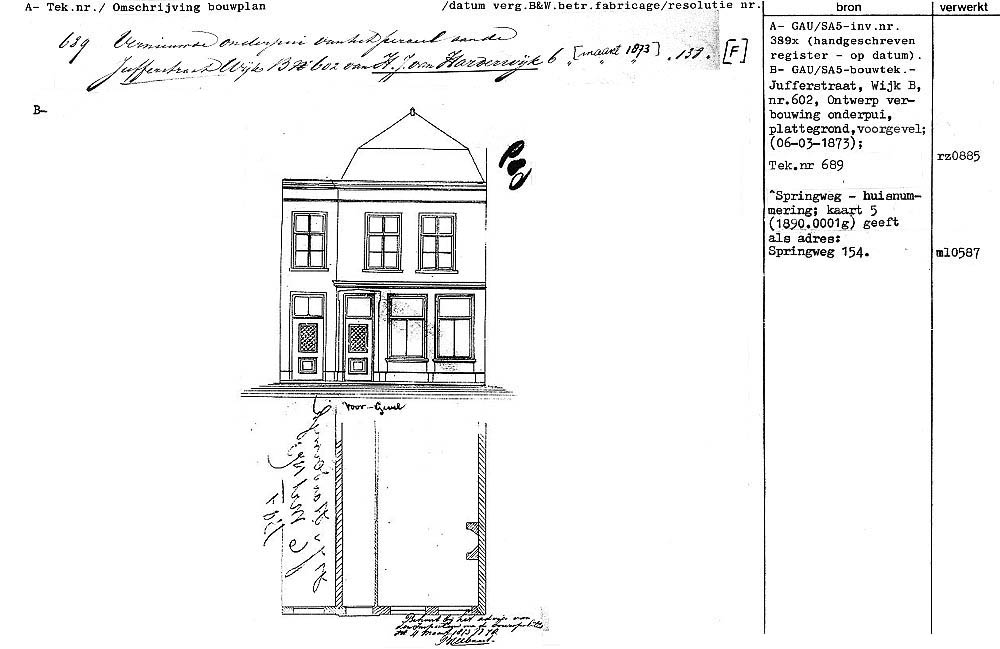 A- Tek.nr./ Omschrijving bouwplan /datum verg.B&W.betr.fabricage/resolutie nr. bron verwerkt
689 Vernieuwde onderpui van het perceel aan de
Jufferstraat Wijk B No 602 van H. J. van Harderwijk 6 [maart 1873] . 139. [F]
B-
Voor-Gevel
Behoort bij het advijs van
den
dd 4 Maart 1873
A- GAU/SA5-inv.nr.
389x (handgeschreven
register - op datum).
B- GAU/SA5-bouwtek.-
Jufferstraat, Wijk B,
nr.602, Ontwerp ver-
bouwing onderpui,
plattegrond,voorgevel;
(06-03-1873);
Tek.nr 689
^Springweg - huisnum-
mering; kaart 5
(1890.0001g) geeft
als adres:
Springweg 154.
rz0885
ml0587